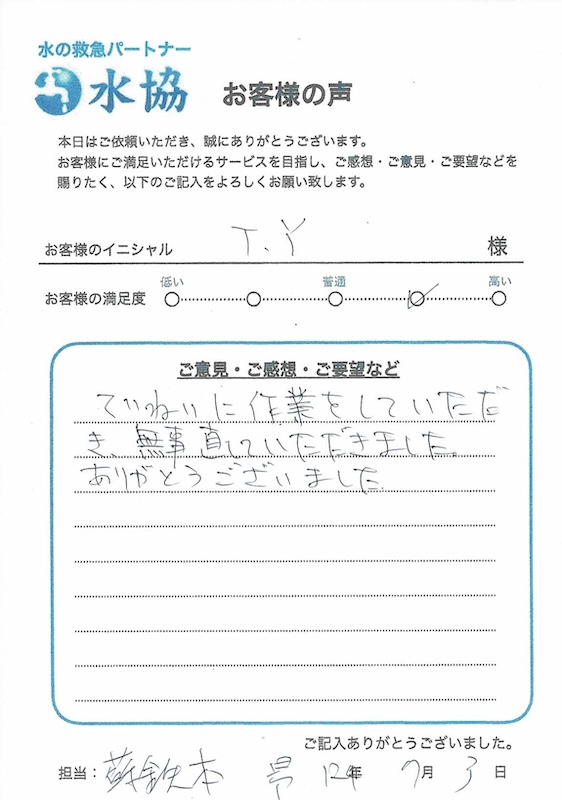 水の救急パートナー
水協 お客様の声
本日はご依頼いただき、誠にありがとうございます。
お客様にご満足いただけるサービスを目指し、ご感想・ご意見・ご要望などを
賜りたく、以下のご記入をよろしくお願い致します。
お客様のイニシャル T.Y 様
低い 普通 高い
お客様の満足度
ご意見・ご感想・ご要望など
ていねいに作業をしていただだ
き、無事直していただきました。
ありがとうございました。
ご記入ありがとうございました。
担当: 本 年 7月 3日